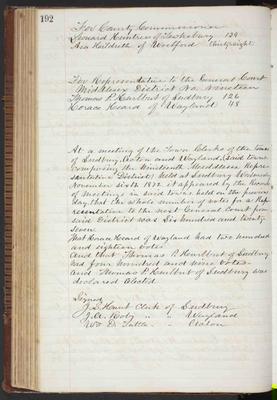 192
For County Commissioner
Leonard Huntress of Tewksbury 124
Asa Hildreth of Westford
For Representative to the General Court
Middlesex District No. nineteen
Thomas P. Hurlbut of Sudbury 126
Horace Heard of Wayland 48
At a meeting of the Town Clerks of the towns
of Sudbury, Acton and Wayland, said towns
composing the Nineteenth Middlesex Repre-
sentative District, held at Sudbury Wednesday
November sixth 1872 it appeared by the Records
of meetings in said towns held on the
day, that the whole number of votes for a Rep
resentative to the next General Court from
said District was Six hundred and twenty
Seven
That Horace Heard of Wayland had two hundred
and eighteen votes
And that Thomas P. Hurlbut of Sudbury
had four hundred and nine votes
and Thomas P. Hurlbut of Sudbury was
declared Elected.
Signed
J. S. Hunt Clerk of Sudbury
" " Wayland
Wm D. Tuttle " " Acton